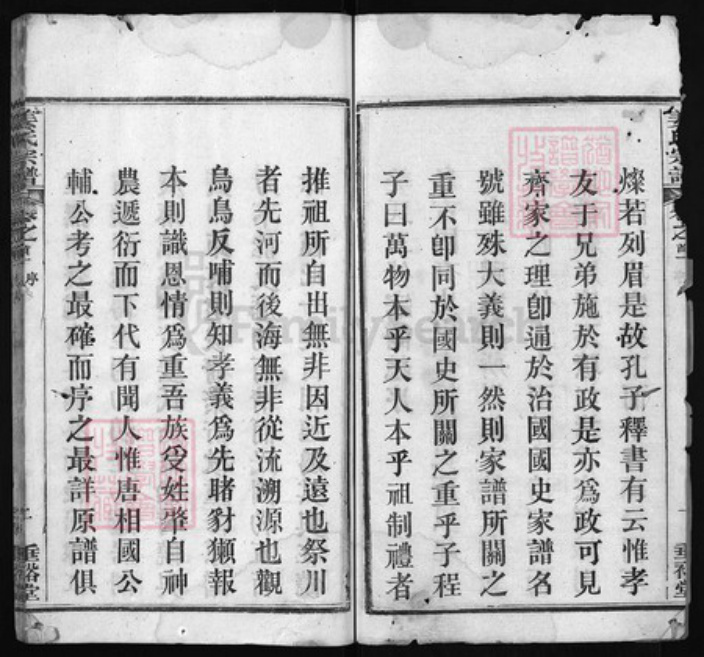 燦若列眉是故孔子釋書有云惟孝
友于兄弟施於有政是亦爲政可見
齊家之理卽通於治國國史家譜名
號雖殊大義則一然則家譜所關之
重不卽同於國史所關之重乎子程
子曰萬物本乎天人本乎祖制禮者
推祖所自出無非因近及遠也祭川
者先河而後海無非從流溯源也觀
烏鳥反哺則知孝義爲先睹豺獺報
本則識恩情爲重吾族受姓肇自神
農遞衍而下代有聞人惟唐相國公
輔公考之最確而序之最詳原譜俱
姜氏宗譜
卷之首
序
二
垂裕堂
FamilySearch